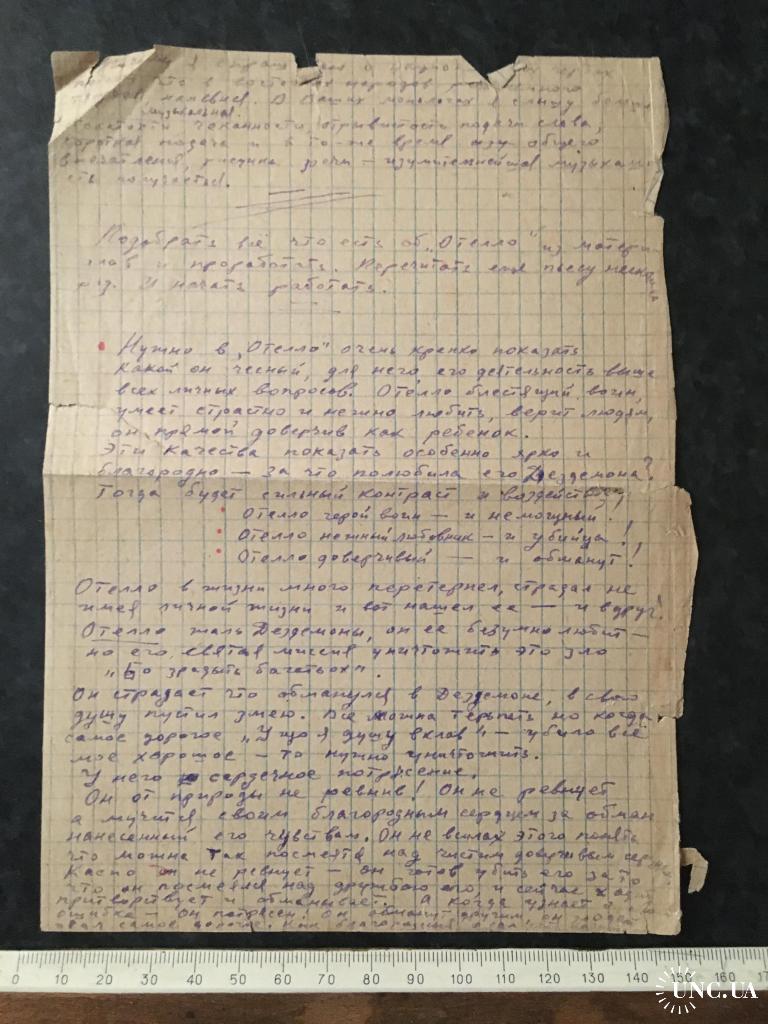 что в восточных народов
напевная. В Ваших монологах я слышу
музыкальная
чеканность, отрывистость подачи слова,
короткая подача и в то-же время
впечатления, рисунка речи — изумительнейшая
Подобрать всё что есть об "Отелло" из матери-
алов и проработать. Перечитать ещё пьесу
раз. И начать работать.
Нужно в "Отелло" очень крепко показать
какой он чесный, для него его деятельность выше
всех личных вопросов. Отелло блестящий воин,
умеет страстно и нежно любить, верит людям,
он прямой доверчив как ребенок.
Эти качества показать особенно ярко и
благородно — за что полюбила его Дездемона?
Тогда будет сильный контраст и воздействие!
Отелло герой воин — и немощный!
Отелло нежный любовник — и убийца!
Отелло доверчивый — и обманут!
Отелло в жизни много перетерпел, страдал не
имея личной жизни и вот нашел ее — и вдруг!
Отелло жаль Дездемоны, он ее безумно любит —
но его святая миссия уничтожить это зло
"Бо зрадыть багатьох".
Он страдает что обманулся в Дездемоне, в свою
душу пустил змею. Все можна терпеть но когда
самое дорогое "У що я душу вклав" — убило всё
мое хорошое — то нужно уничтожить.
У него сердечное потрясение.
Он от природы не ревнив! Он не ревнует
а мучится своим благородным сердцем за обман
нанесенный его чувствам. Он не в силах этого понять
что можна так посмеятся над чистым доверчивым
Касио он не ревнует — он готов убить его за то
что он посмеялся над дружбою его, и сейчас
притворствует и обманывает. А когда узнает
ошибка — он потрясен! он обманут другим, он
самое дорогое. как благородный
0 10 20 30 40 50 60 70 80 90 100 110 120 130 140 150 160 17
UNC.UA